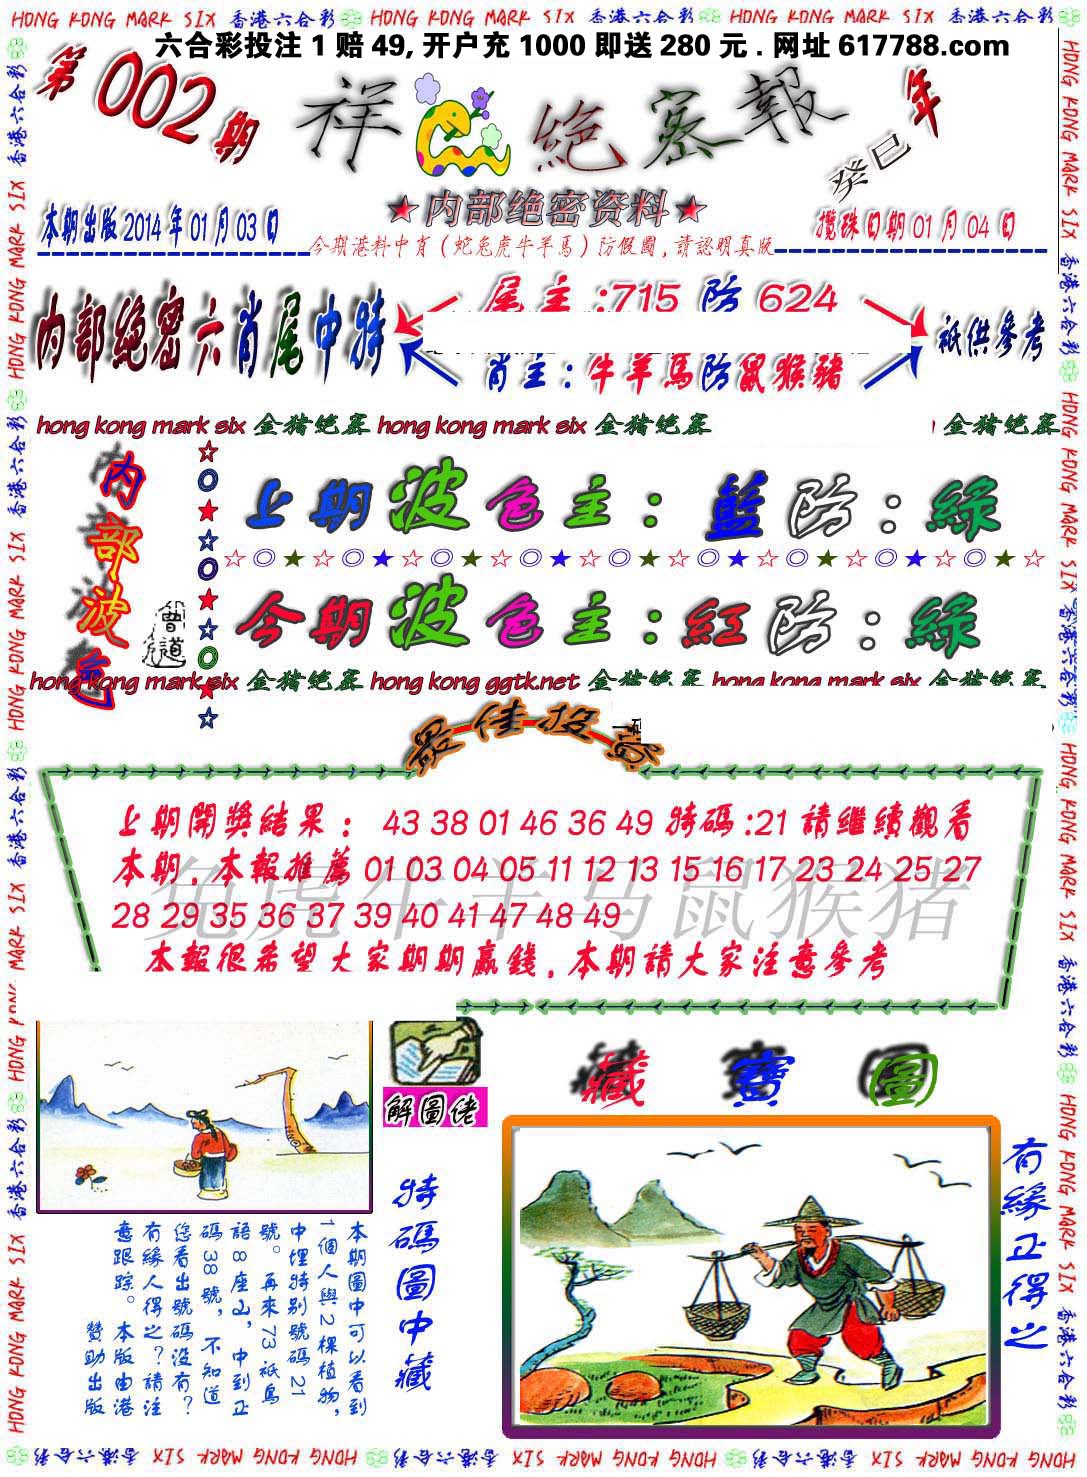 HONG KONG MARK SIX 香港六合彩 HONG KONG MARK SIX 香港六合彩 HONG KONG MARK SIX 香港六合彩
六合彩投注 1 赔 49, 开户充 1000 即送 280 元 . 网址 617788.com
第002期
祥 絶密報
癸巳年
★内部绝密资料★
本期出版 2014 年 01 月 03 日
攪珠日期 01 月 04 日
今期港料中肖（蛇兔虎牛羊馬）防假圖,請認明真版
内部絶密六肖尾中特
尾主:715 防 624
肖主:牛羊馬防鼠猴豬
祇供參考
hong kong mark six 金猪绝密 hong kong mark six 金猪绝密
金猪绝密
内部波色
曾道
上期波色主:藍防:綠
☆◎★☆◎★☆◎★☆◎★☆◎★☆◎★☆◎★☆◎★☆◎★☆
今期波色主:紅防:綠
hong kong mark six 金猪绝密 hong kong ggtk.net 金猪绝密 hong kong mark six 金猪绝密
最佳投
上期開獎結果： 43 38 01 46 36 49 特碼:21 請繼續觀看
本期,本報推薦 01 03 04 05 11 12 13 15 16 17 23 24 25 27
28 29 35 36 37 39 40 41 47 48 49
兔虎牛羊马鼠猴猪
本報很希望大家期期贏錢,本期請大家注意參考
解圖佬
藏寶圖
特碼圖中藏
有緣正得之
本期圖中可以看到
1個人與2棵植物,
中埋特别號碼21
號。再來73祇鳥
語8座山,中到正
碼38號,不知道
您看出號碼没有?
有緣人得之?請注
意跟踪。本版由港
贊助出版
HONG KONG MARK SIX 香港六合彩 HONG KONG MARK SIX 香港六合彩 HONG KONG MARK SIX 香港六合彩 HONG KONG MARK SIX 香港六合彩
HONG KONG MARK SIX 香港六合彩 HONG KONG MARK SIX 香港六合彩 HONG KONG MARK SIX 香港六合彩 HONG KONG MARK SIX 香港六合彩
HONG KONG MARK SIX 香港六合彩 HONG KONG MARK SIX 香港六合彩 HONG KONG MARK SIX 香港六合彩